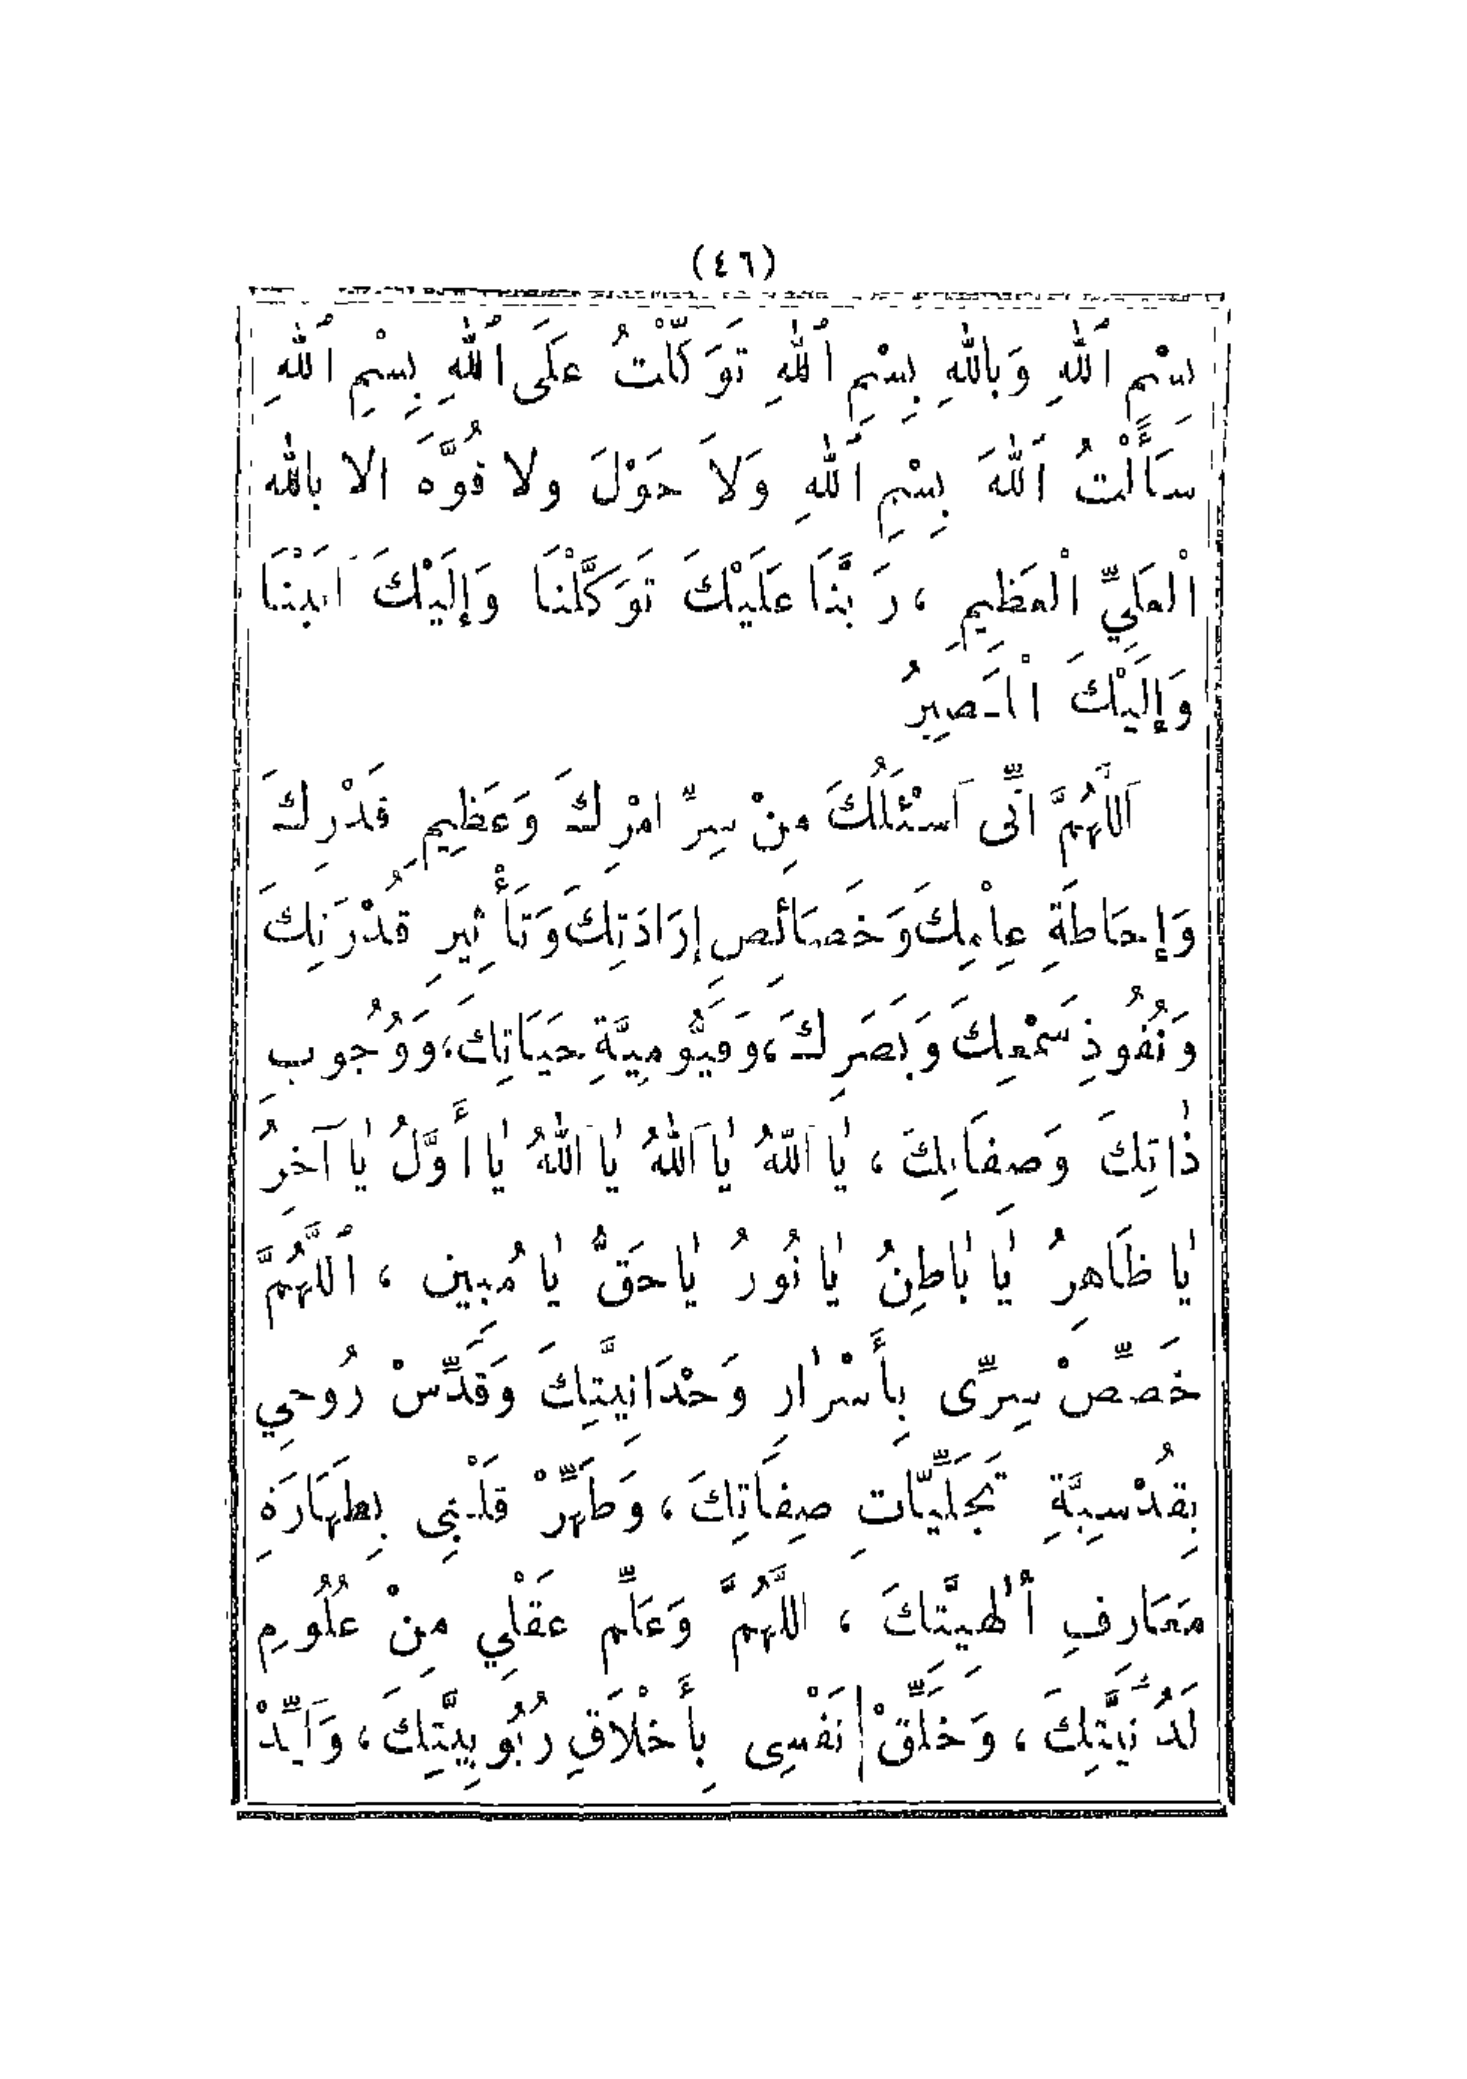 (٤٦)
بِسْمِ ٱللهِ وَبِاللهِ بِسْمِ ٱللهِ تَوَكَّلْتُ عَلَى ٱللهِ بِسْمِ ٱللهِ
سَأَلْتُ ٱللهَ بِسْمِ ٱللهِ وَلاَ حَوْلَ ولا قُوَّهَ الا بالله
اْلعَلِيِّ اْلعَظِيمِ ، رَبَّنَا عَلَيْكَ تَوَكَّلْنَا وَإِلَيْكَ اَنَبْنَا
وَإِلَيْكَ اْلمَـصِيرُ
اَللَّهُمَّ انِّى اَسْئَلُكَ مِنْ سِرِّ امْرِكَ وَعَظِيمِ قَدْرِكَ
وَإِحَاطَةِ عِلْمِكَ وَخَصَائِصِ إِرَادَتِكَ وَتَأْثِيرِ قُدْرَتِكَ
وَنُفُوذِ سَمْعِكَ وَبَصَرِكَ ، وَقَيُّومِيَّةِ حَيَاتِكَ ، وَوُجُوبِ
ذٰاتِكَ وَصِفَاتِكَ ، يٰا اَللّهُ يٰا اَللهُ يٰا اَللهُ يٰا أَوَّلُ يٰا آخِرُ
يٰا ظَاهِرُ يٰا بٰاطِنُ يٰا نُورُ يٰا حَقُّ يٰا مُبِين ، ٱللَّهُمَّ
خَصِّصْ سِرِّى بِأَسْرٰارِ وَحْدَانِيَّتِكَ وَقَدِّسْ رُوحِي
بِقُدْسِيَّةِ تَجَلِّيَّاتِ صِفَاتِكَ ، وَطَهِّرْ قَلْـبِى بِطَهَارَةِ
مَعَارِفِ أُلٰهِيَّتِكَ ، اللَّهُمَّ وَعَلِّم عَقْلِي مِنْ عُلُومِ
لَدُنِّيَّتِكَ ، وَخَلِّقْ نَفْسِى بِأَخْلَاقِ رُبُوبِيَّتِكَ ، وَاَيِّدْ